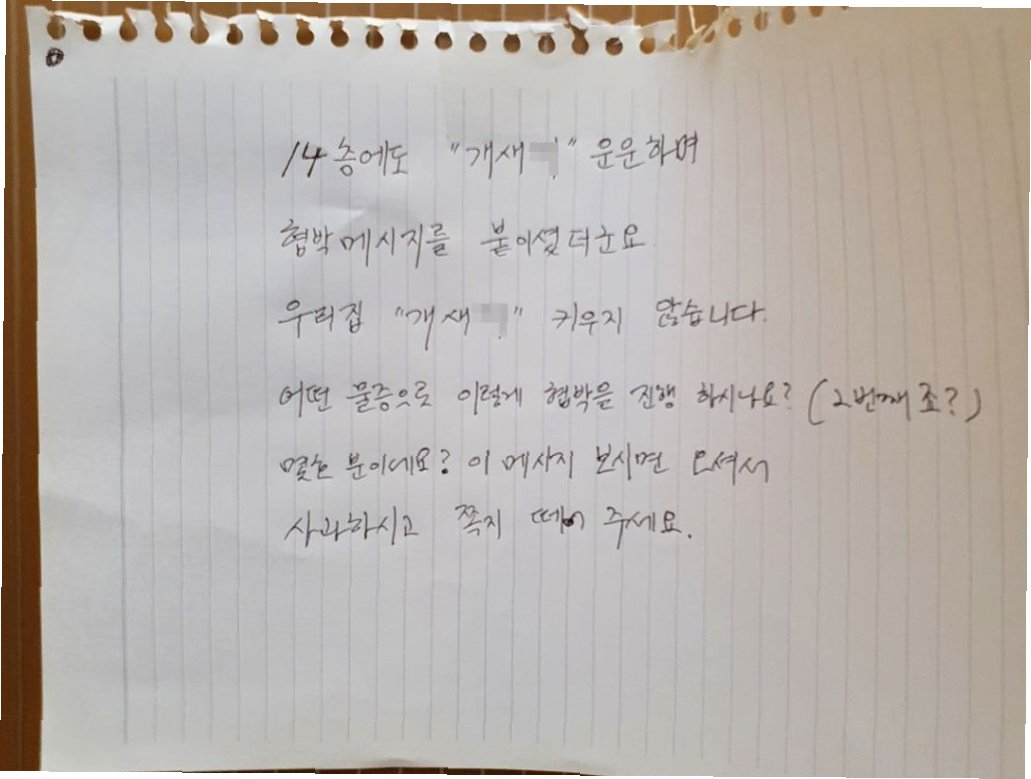 14층에도 "개새" 운운하며
협박메시지를 붙이셨더군요
우리집 "개새" 키우지 않습니다.
어떤 물증으로 이렇게 협박을 진행 하시나요? (2번째 죠?)
몇호 분이데요? 이 메사지 보시면 오셔서
사과하시고 쪽지 떼어 주세요.